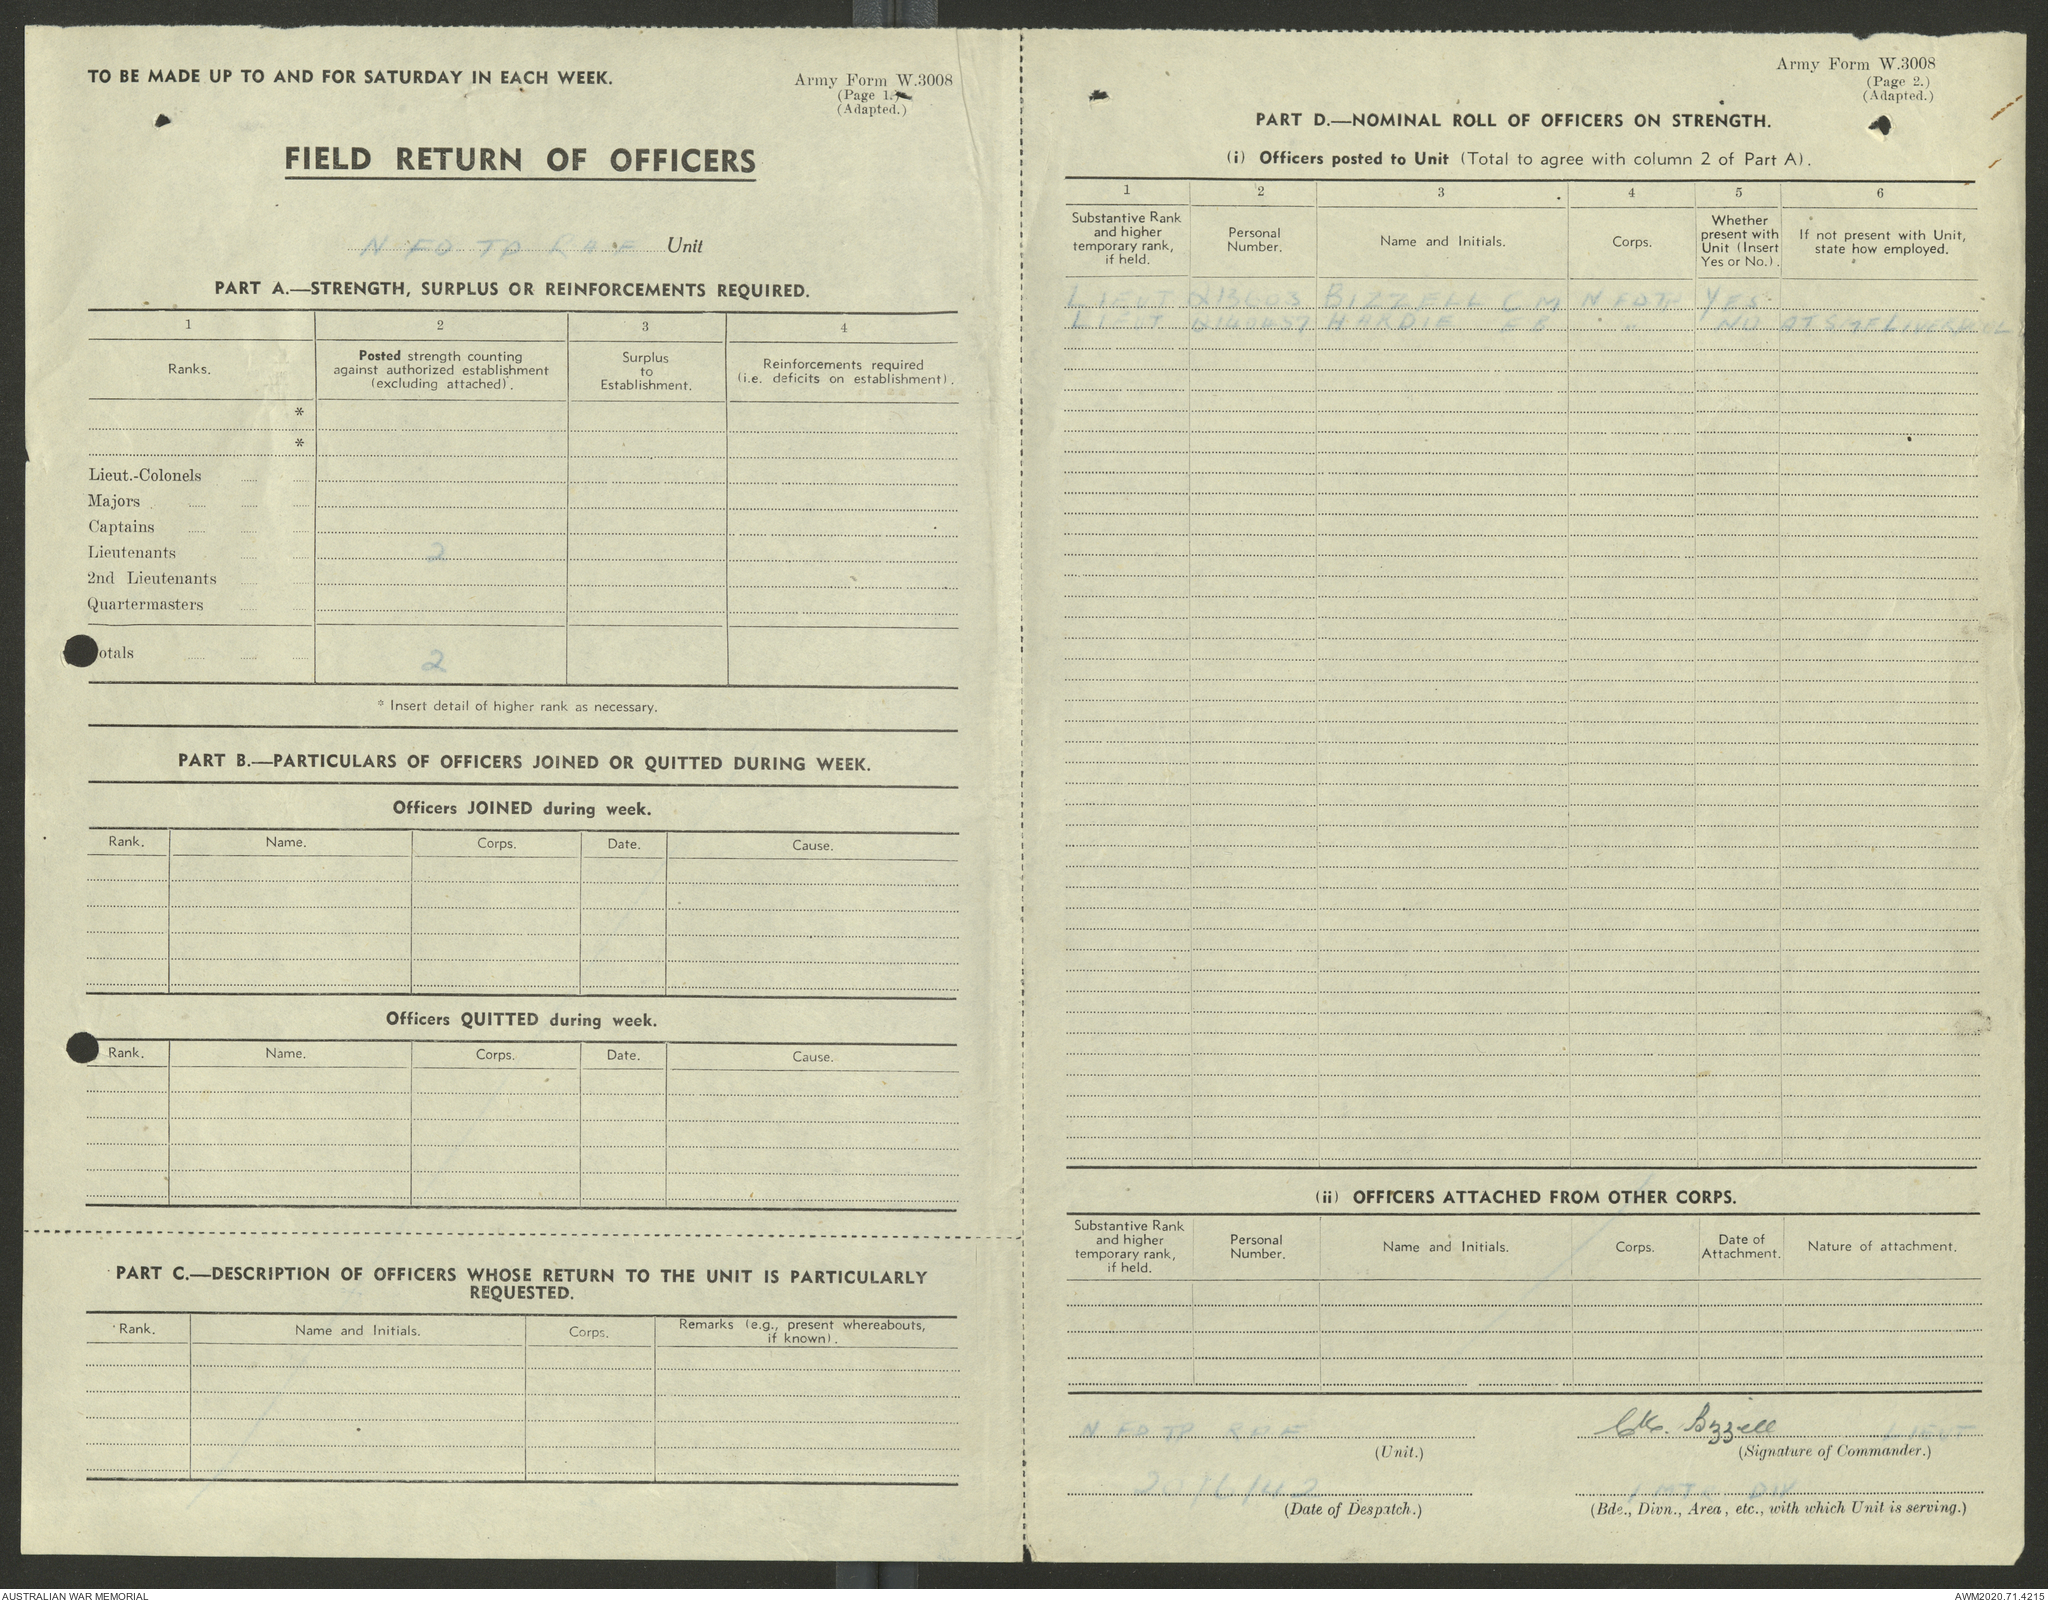 TO BE MADE UP TO AND FOR SATURDAY IN EACH WEEK.
Army Form W.3008
(Page 1.)
(Adapted.)
FIELD RETURN OF OFFICERS
N FD TP Unit
PART A.—STRENGTH, SURPLUS OR REINFORCEMENTS REQUIRED.
1 2 3 4
Ranks.
Posted strength counting
against authorized establishment
(excluding attached).
Surplus
to
Establishment.
Reinforcements required
(i.e. deficits on establishment).
*
*
Lieut.-Colonels
Majors
Captains
Lieutenants 2
2nd Lieutenants
Quartermasters
otals 2
* Insert detail of higher rank as necessary.
PART B.—PARTICULARS OF OFFICERS JOINED OR QUITTED DURING WEEK.
Officers JOINED during week.
Rank. Name. Corps. Date. Cause.
Officers QUITTED during week.
Rank. Name. Corps. Date. Cause.
PART C.—DESCRIPTION OF OFFICERS WHOSE RETURN TO THE UNIT IS PARTICULARLY
REQUESTED.
Rank. Name and Initials. Corps.
Remarks (e.g., present whereabouts,
if known).
Army Form W.3008
(Page 2.)
(Adapted.)
PART D.—NOMINAL ROLL OF OFFICERS ON STRENGTH.
(i) Officers posted to Unit (Total to agree with column 2 of Part A).
1 2 3 4 5 6
Substantive Rank
and higher
temporary rank,
if held.
Personal
Number.
Name and Initials.
Corps.
Whether
present with
Unit (Insert
Yes or No.).
If not present with Unit,
state how employed.
LIEUT BIZZELL C M N FD TP YES
LIEUT HARDIE E B " NO LIVERPOOL
(ii) OFFICERS ATTACHED FROM OTHER CORPS.
Substantive Rank
and higher
temporary rank,
if held.
Personal
Number.
Name and Initials.
Corps.
Date of
Attachment.
Nature of attachment.
N FD TP
(Unit.)
Bizzell LIEUT
(Signature of Commander.)
20/6/42
(Date of Despatch.)
1 DIV
(Bde., Divn., Area, etc., with which Unit is serving.)
AUSTRALIAN WAR MEMORIAL
AWM2020.71.4215